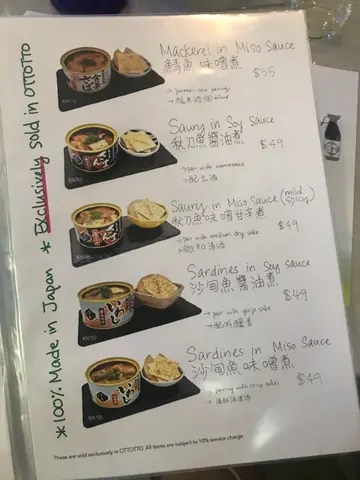 Mackerel in Miso Sauce
鯖魚味噌煮 $55
Saury in Soy Sauce
秋刀魚醬油煮 $49
→ pair with namazake
→ 配生酒
Saury in Miso Sauce (mild spicy)
秋刀魚味噌甘辛煮 $49
→ pair with medium dry sake
Sardines in Soy sauce
沙甸魚醬油煮 $49
→ pair with ginjo sake
→ 配吟釀酒
Sardines in Miso Sauce
沙甸魚味噌煮 $49
→ pairing with crisp sake
*100% Made in Japan * Exclusively sold in OTTOTTO
These are sold exclusively in OTTOTTO. All items are subject to 10% service charge.